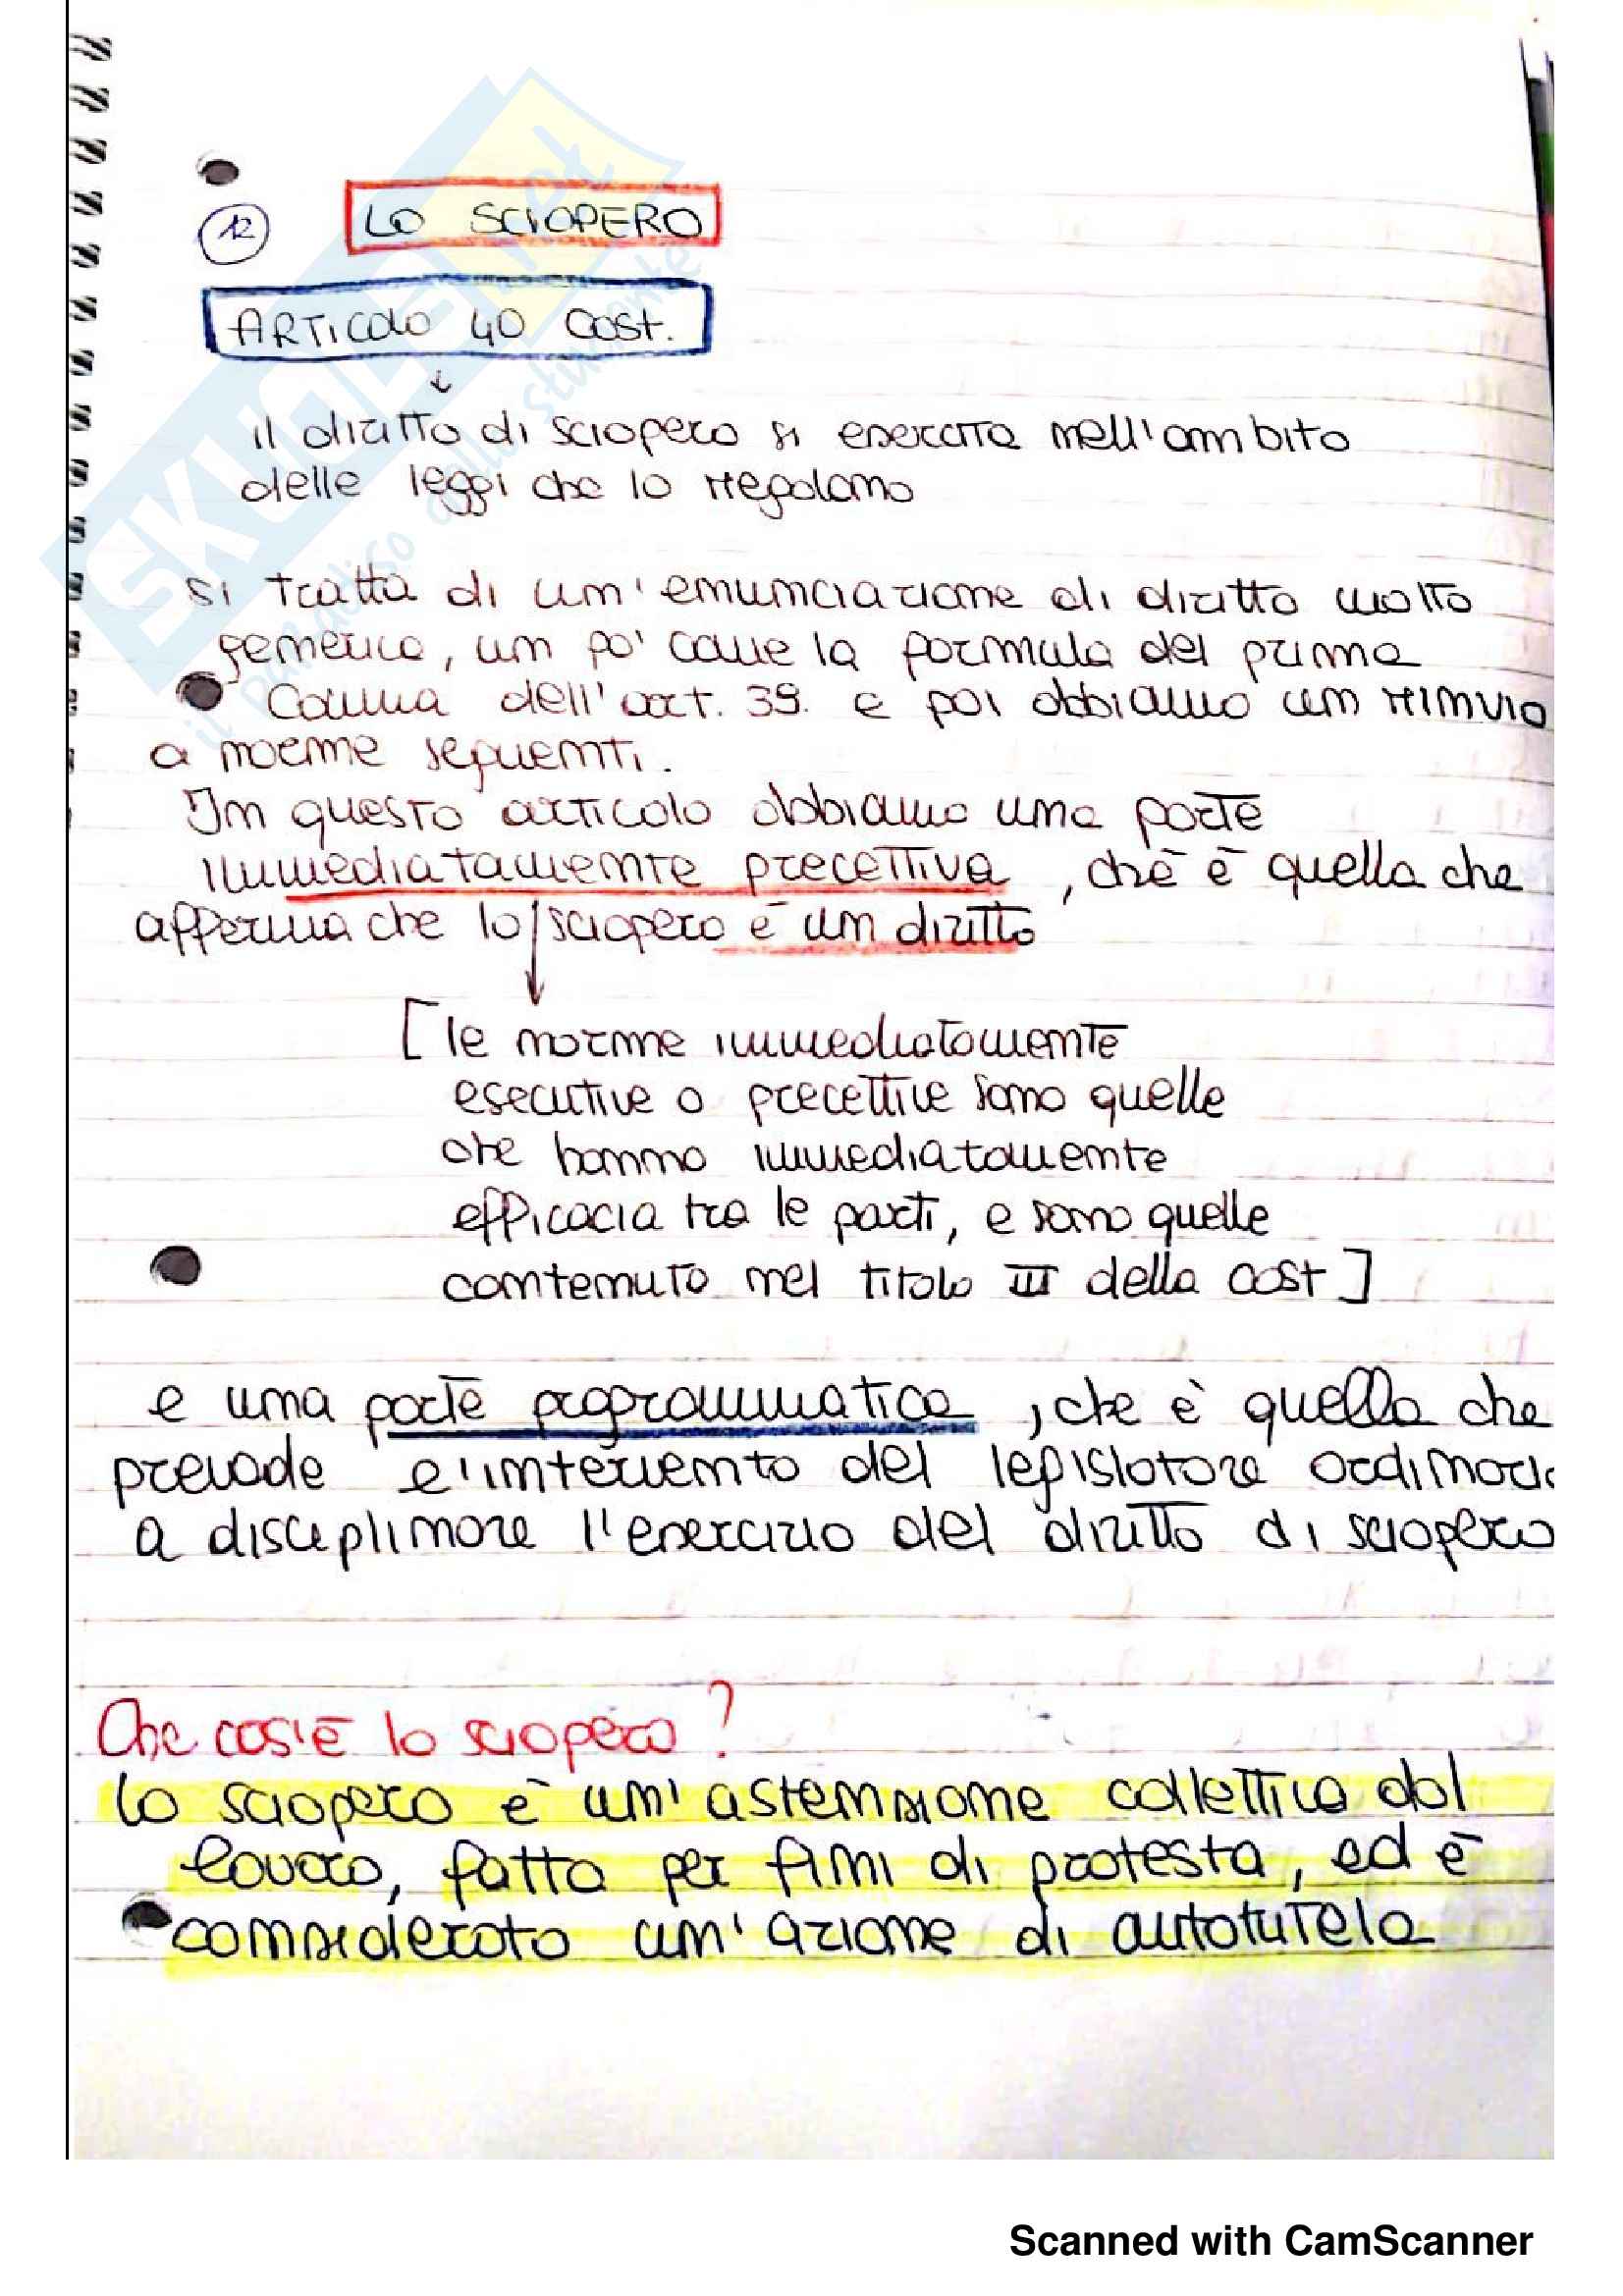 12
LO SCIOPERO
ARTICOLO 40 COST.
il diritto di sciopero si esercita nell'ambito
delle leggi che lo regolano
si tratta di un'enunciazione di diritto molto
generica, un po' come la formula del primo
comma dell'art. 39. e poi abbiamo un rinvio
a norme seguenti.
In questo articolo abbiamo una parte
immediatamente precettiva, che è quella che
afferma che lo sciopero è un diritto
[le norme immediatamente
esecutive o precettive sono quelle
che hanno immediatamente
efficacia tra le parti, e sono quelle
contenuto nel titolo III della cost]
e una parte programmatica, che è quella che
prevade l'intervento del legislatore ordinario
a disciplinare l'esercizio del diritto di sciopero
Che cos'è lo sciopero?
Lo sciopero è un'astensione collettiva dal
lavoro, fatta per fini di protesta, ed è
considerato un'azione di autotutela
SKUOLA.net
il paradiso dello studente
Scanned with CamScanner